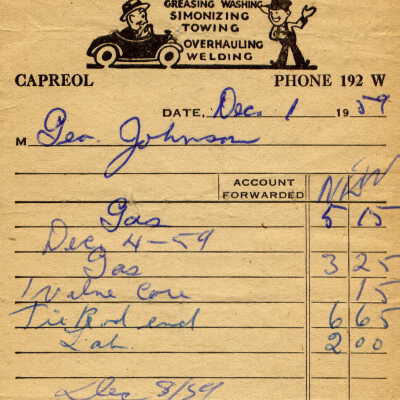 GREASING WASHING
SIMONIZING
TOWING
OVERHAULING
WELDING
CAPREOL PHONE 192 W
DATE, Dec 1 1959
M Geo. Johnson
ACCOUNT
FORWARDED
Gas 5 15
Dec 4-59
Gas 3 25
1 Valve Core 15
Tie Rod end 6 65
Lab. 2 00
Dec 8/59